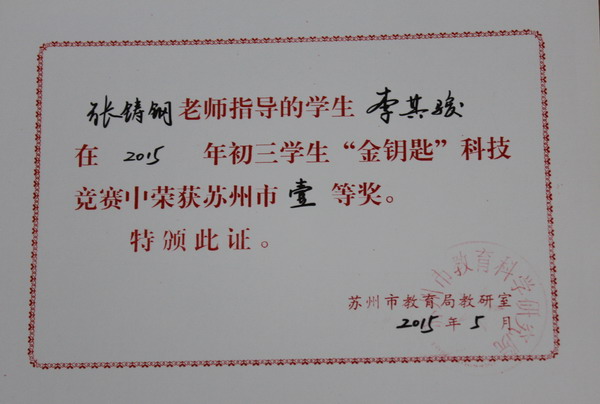 张铸钢老师指导的学生 李其骏
在 2015 年初三学生“金钥匙”科技
竞赛中荣获苏州市 壹 等奖。
特颁此证。
苏州市教育局教研室
2015年5月
州市教育科学研究院